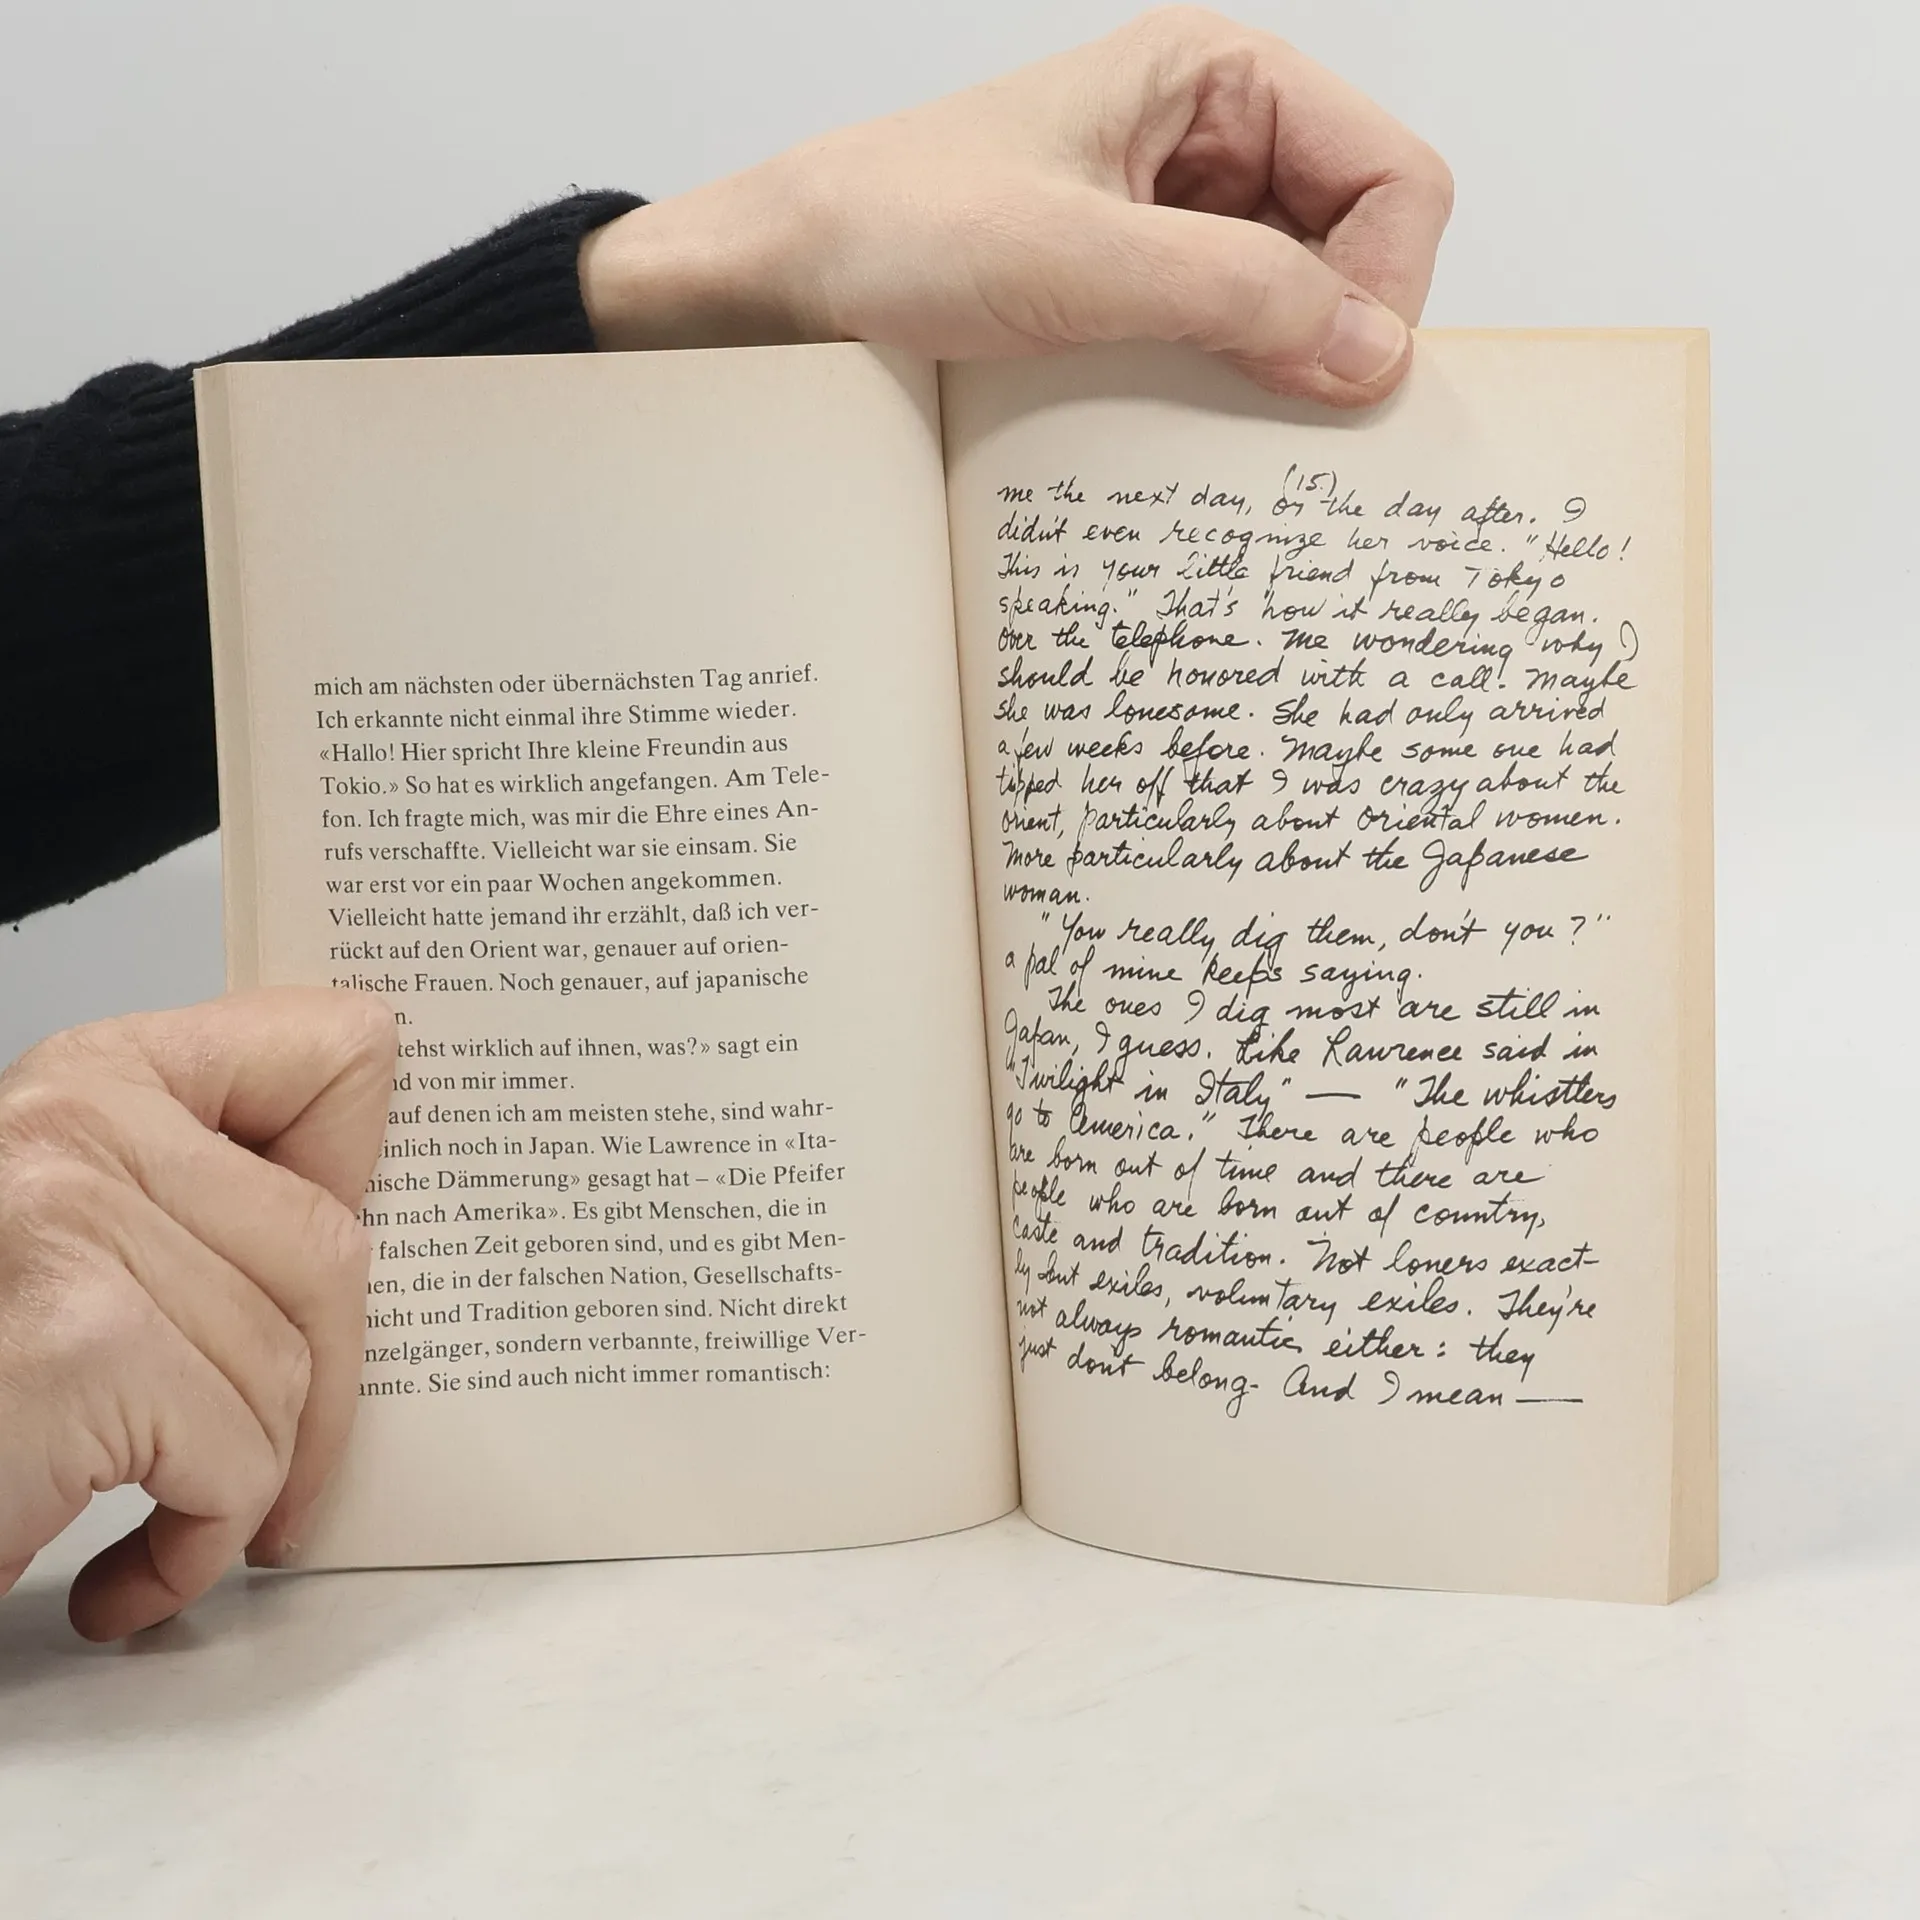 mich am nächsten oder übernächsten Tag anrief.
Ich erkannte nicht einmal ihre Stimme wieder.
«Hallo! Hier spricht Ihre kleine Freundin aus
Tokio.» So hat es wirklich angefangen. Am Tele-
fon. Ich fragte mich, was mir die Ehre eines An-
rufs verschaffte. Vielleicht war sie einsam. Sie
war erst vor ein paar Wochen angekommen.
Vielleicht hatte jemand ihr erzählt, daß ich ver-
rückt auf den Orient war, genauer auf orien-
talische Frauen. Noch genauer, auf japanische
n.
tehst wirklich auf ihnen, was?» sagt ein
nd von mir immer.
auf denen ich am meisten stehe, sind wahr-
inlich noch in Japan. Wie Lawrence in «Ita-
nische Dämmerung» gesagt hat – «Die Pfeifer
hn nach Amerika». Es gibt Menschen, die in
falschen Zeit geboren sind, und es gibt Men-
hen, die in der falschen Nation, Gesellschafts-
hicht und Tradition geboren sind. Nicht direkt
nzelgänger, sondern verbannte, freiwillige Ver-
annte. Sie sind auch nicht immer romantisch:
(15.)
me the next day, or the day after. I
didn't even recognize her voice. "Hello!
This is your little friend from Tokyo
speaking." That's how it really began.
Over the telephone. Me wondering why I
should be honored with a call. Maybe
she was lonesome. She had only arrived
a few weeks before. Maybe some one had
tipped her off that I was crazy about the
orient, particularly about Oriental women.
More particularly about the Japanese
woman.
"You really dig them, don't you?"
a pal of mine keeps saying.
The ones I dig most are still in
Japan, I guess. Like Lawrence said in
"Twilight in Italy" — "The whistlers
go to America." There are people who
are born out of time and there are
people who are born out of country,
caste and tradition. Not loners exact-
ly but exiles, voluntary exiles. They're
not always romantic either: they
just don't belong. And I mean —